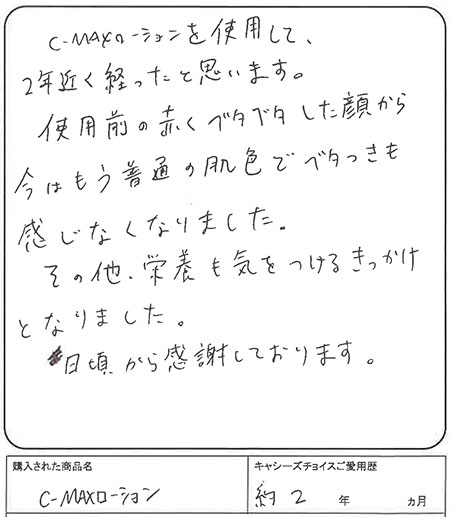 C-MAXローションを使用して、
2年近く経ったと思います。
使用前の赤くベタベタした顔から
今はもう普通の肌色でベタつきも
感じなくなりました。
その他、栄養も気をつけるきっかけ
となりました。
日頃から感謝しております。
購入された商品名
C-MAXローション
キャシーズチョイスご愛用歴
約2年 ヵ月